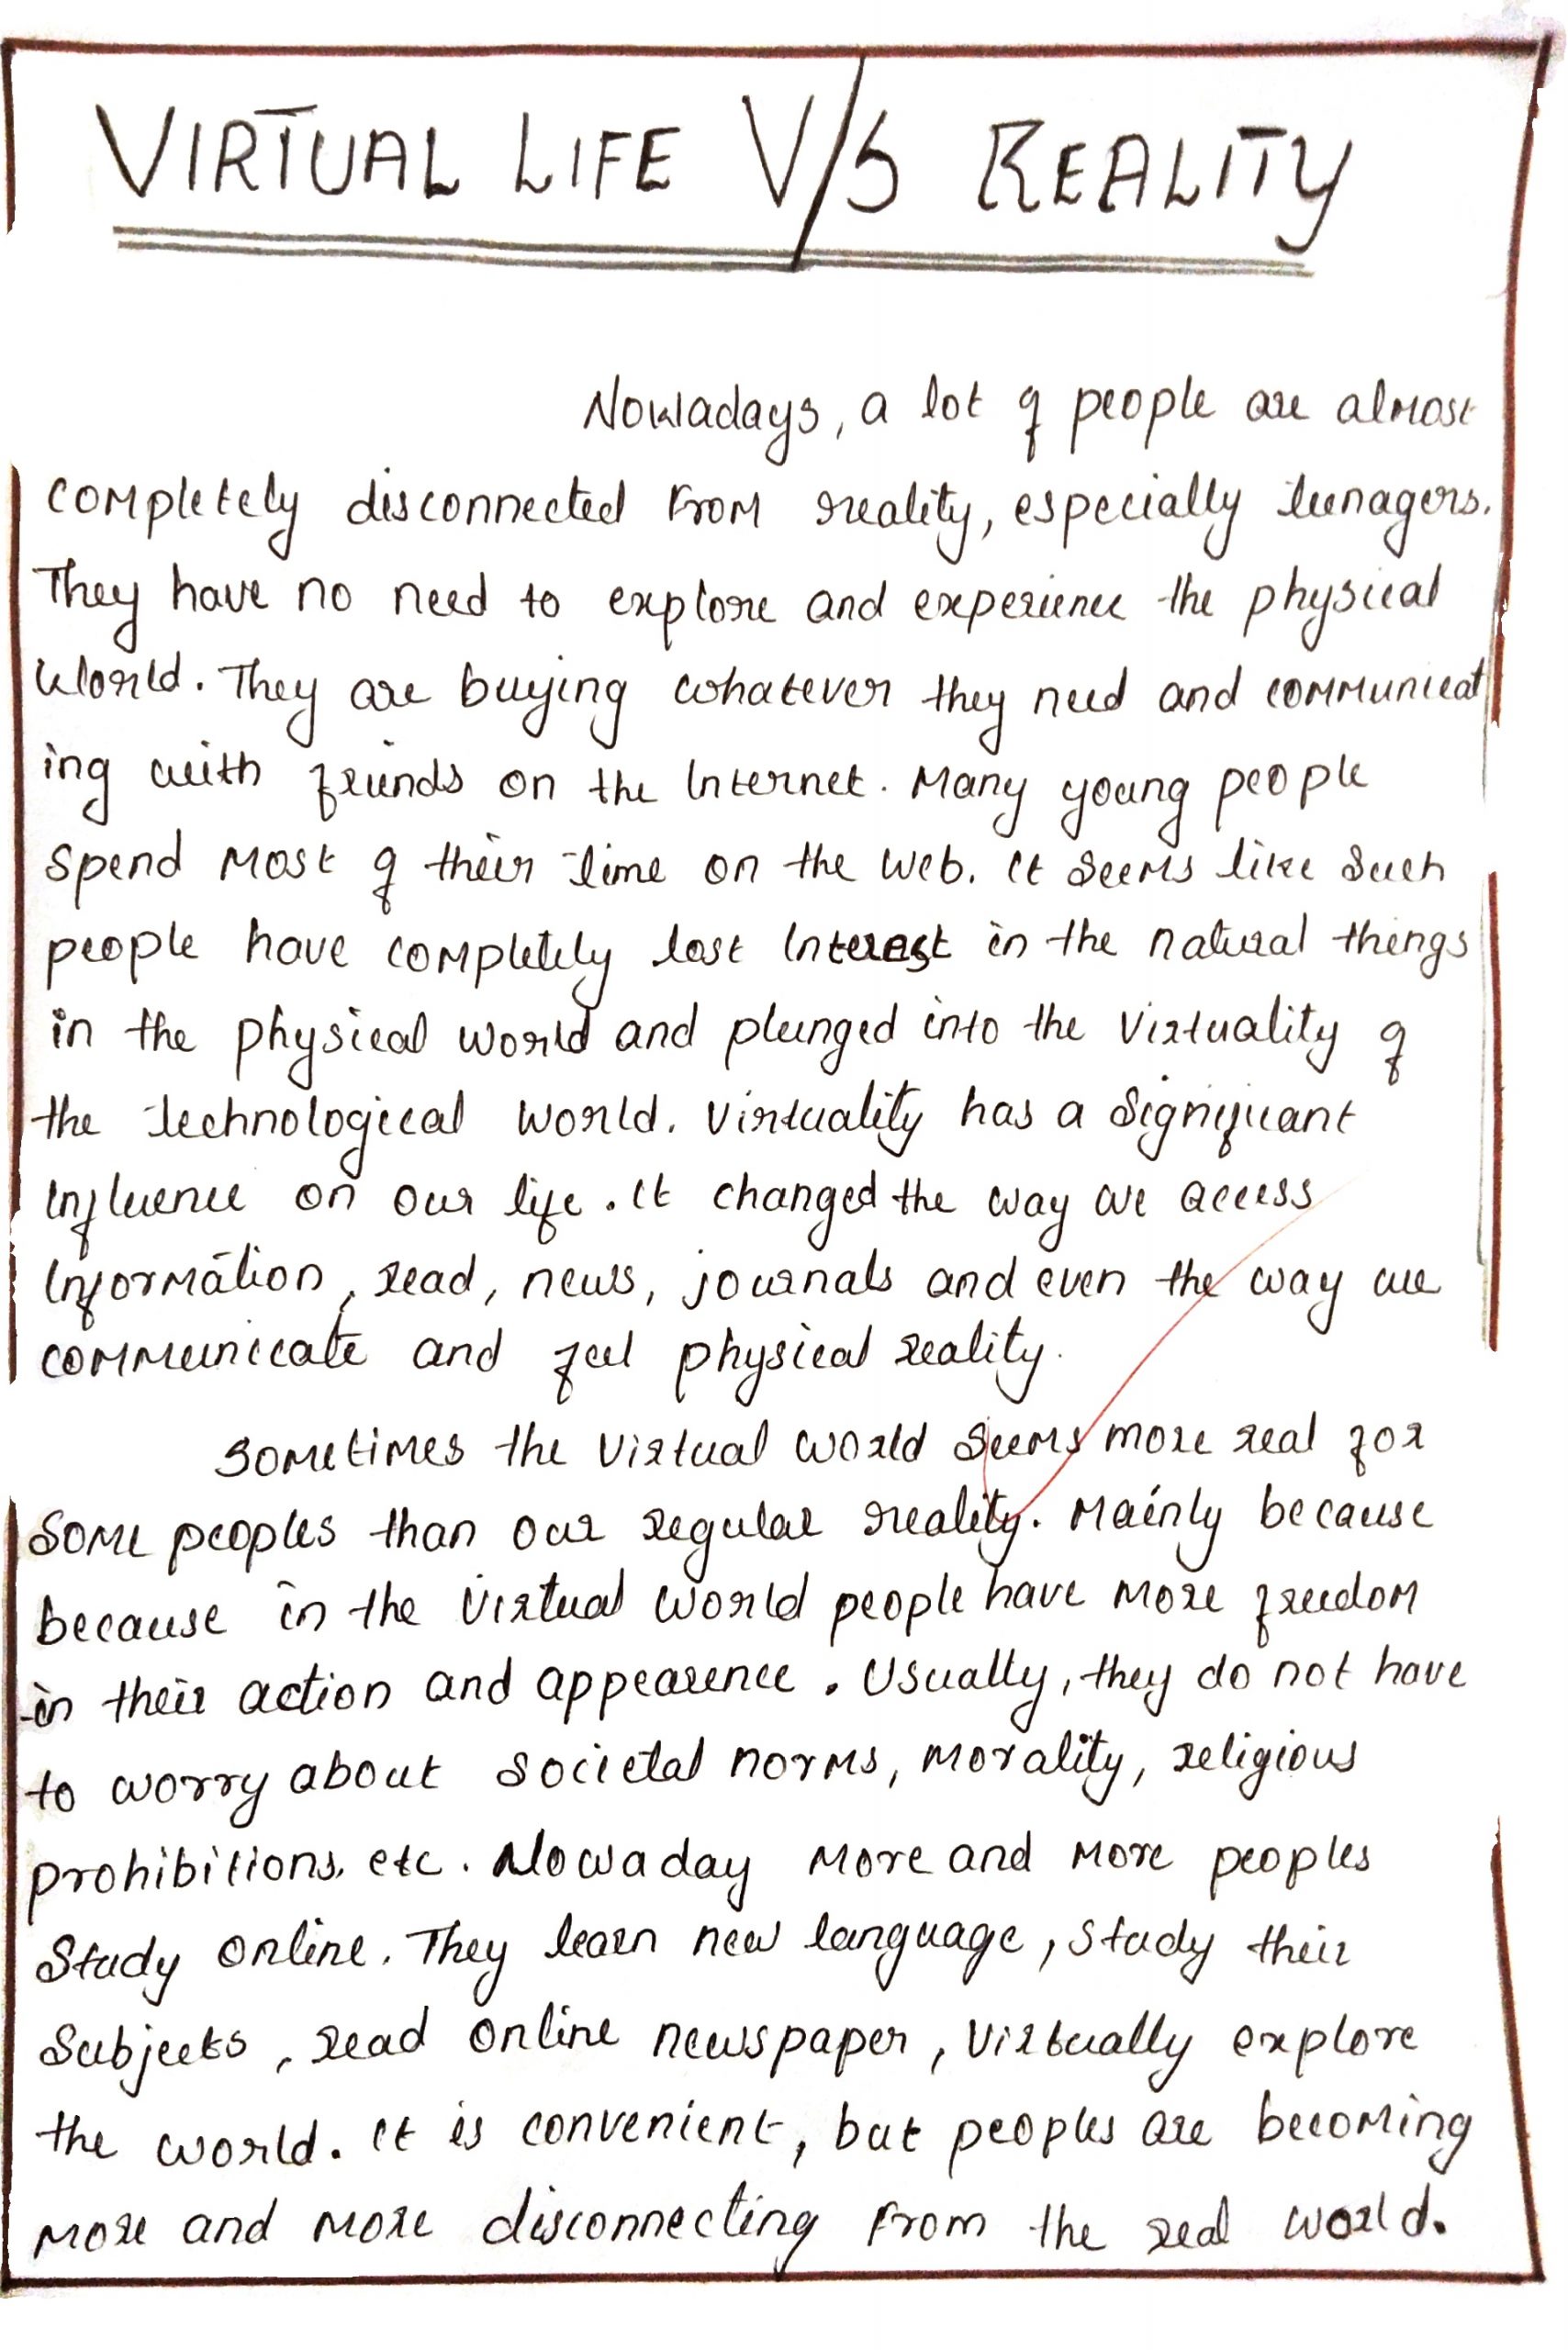 VIRTUAL LIFE V/S REALITY
Nowadays, a lot of people are almost
completely disconnected From reality, especially teenagers.
They have no need to explore and experience the physical
World. They are buying whatever they need and communicat
ing with friends on the Internet. Many young people
spend most of their time on the web. It seems like such
people have completely lost Interest in the natural things
in the physical world and plunged into the Virtuality of
the technological world. Virtuality has a significant
Influence on our life. It changed the way we access
Information, read, news, journals and even the way we
communicate and feel physical reality.
Sometimes the Virtual world seems more real for
Some peoples than our regular reality. Mainly because
because in the Virtual world people have more freedom
in their action and appearence. Usually, they do not have
to worry about societal norms, morality, religious
prohibitions, etc. Nowaday more and more peoples
Study online. They learn new language, study their
Subjects, read online newspaper, Virtually explore
the world. It is convenient, but peoples are becoming
more and more disconnecting From the real world.